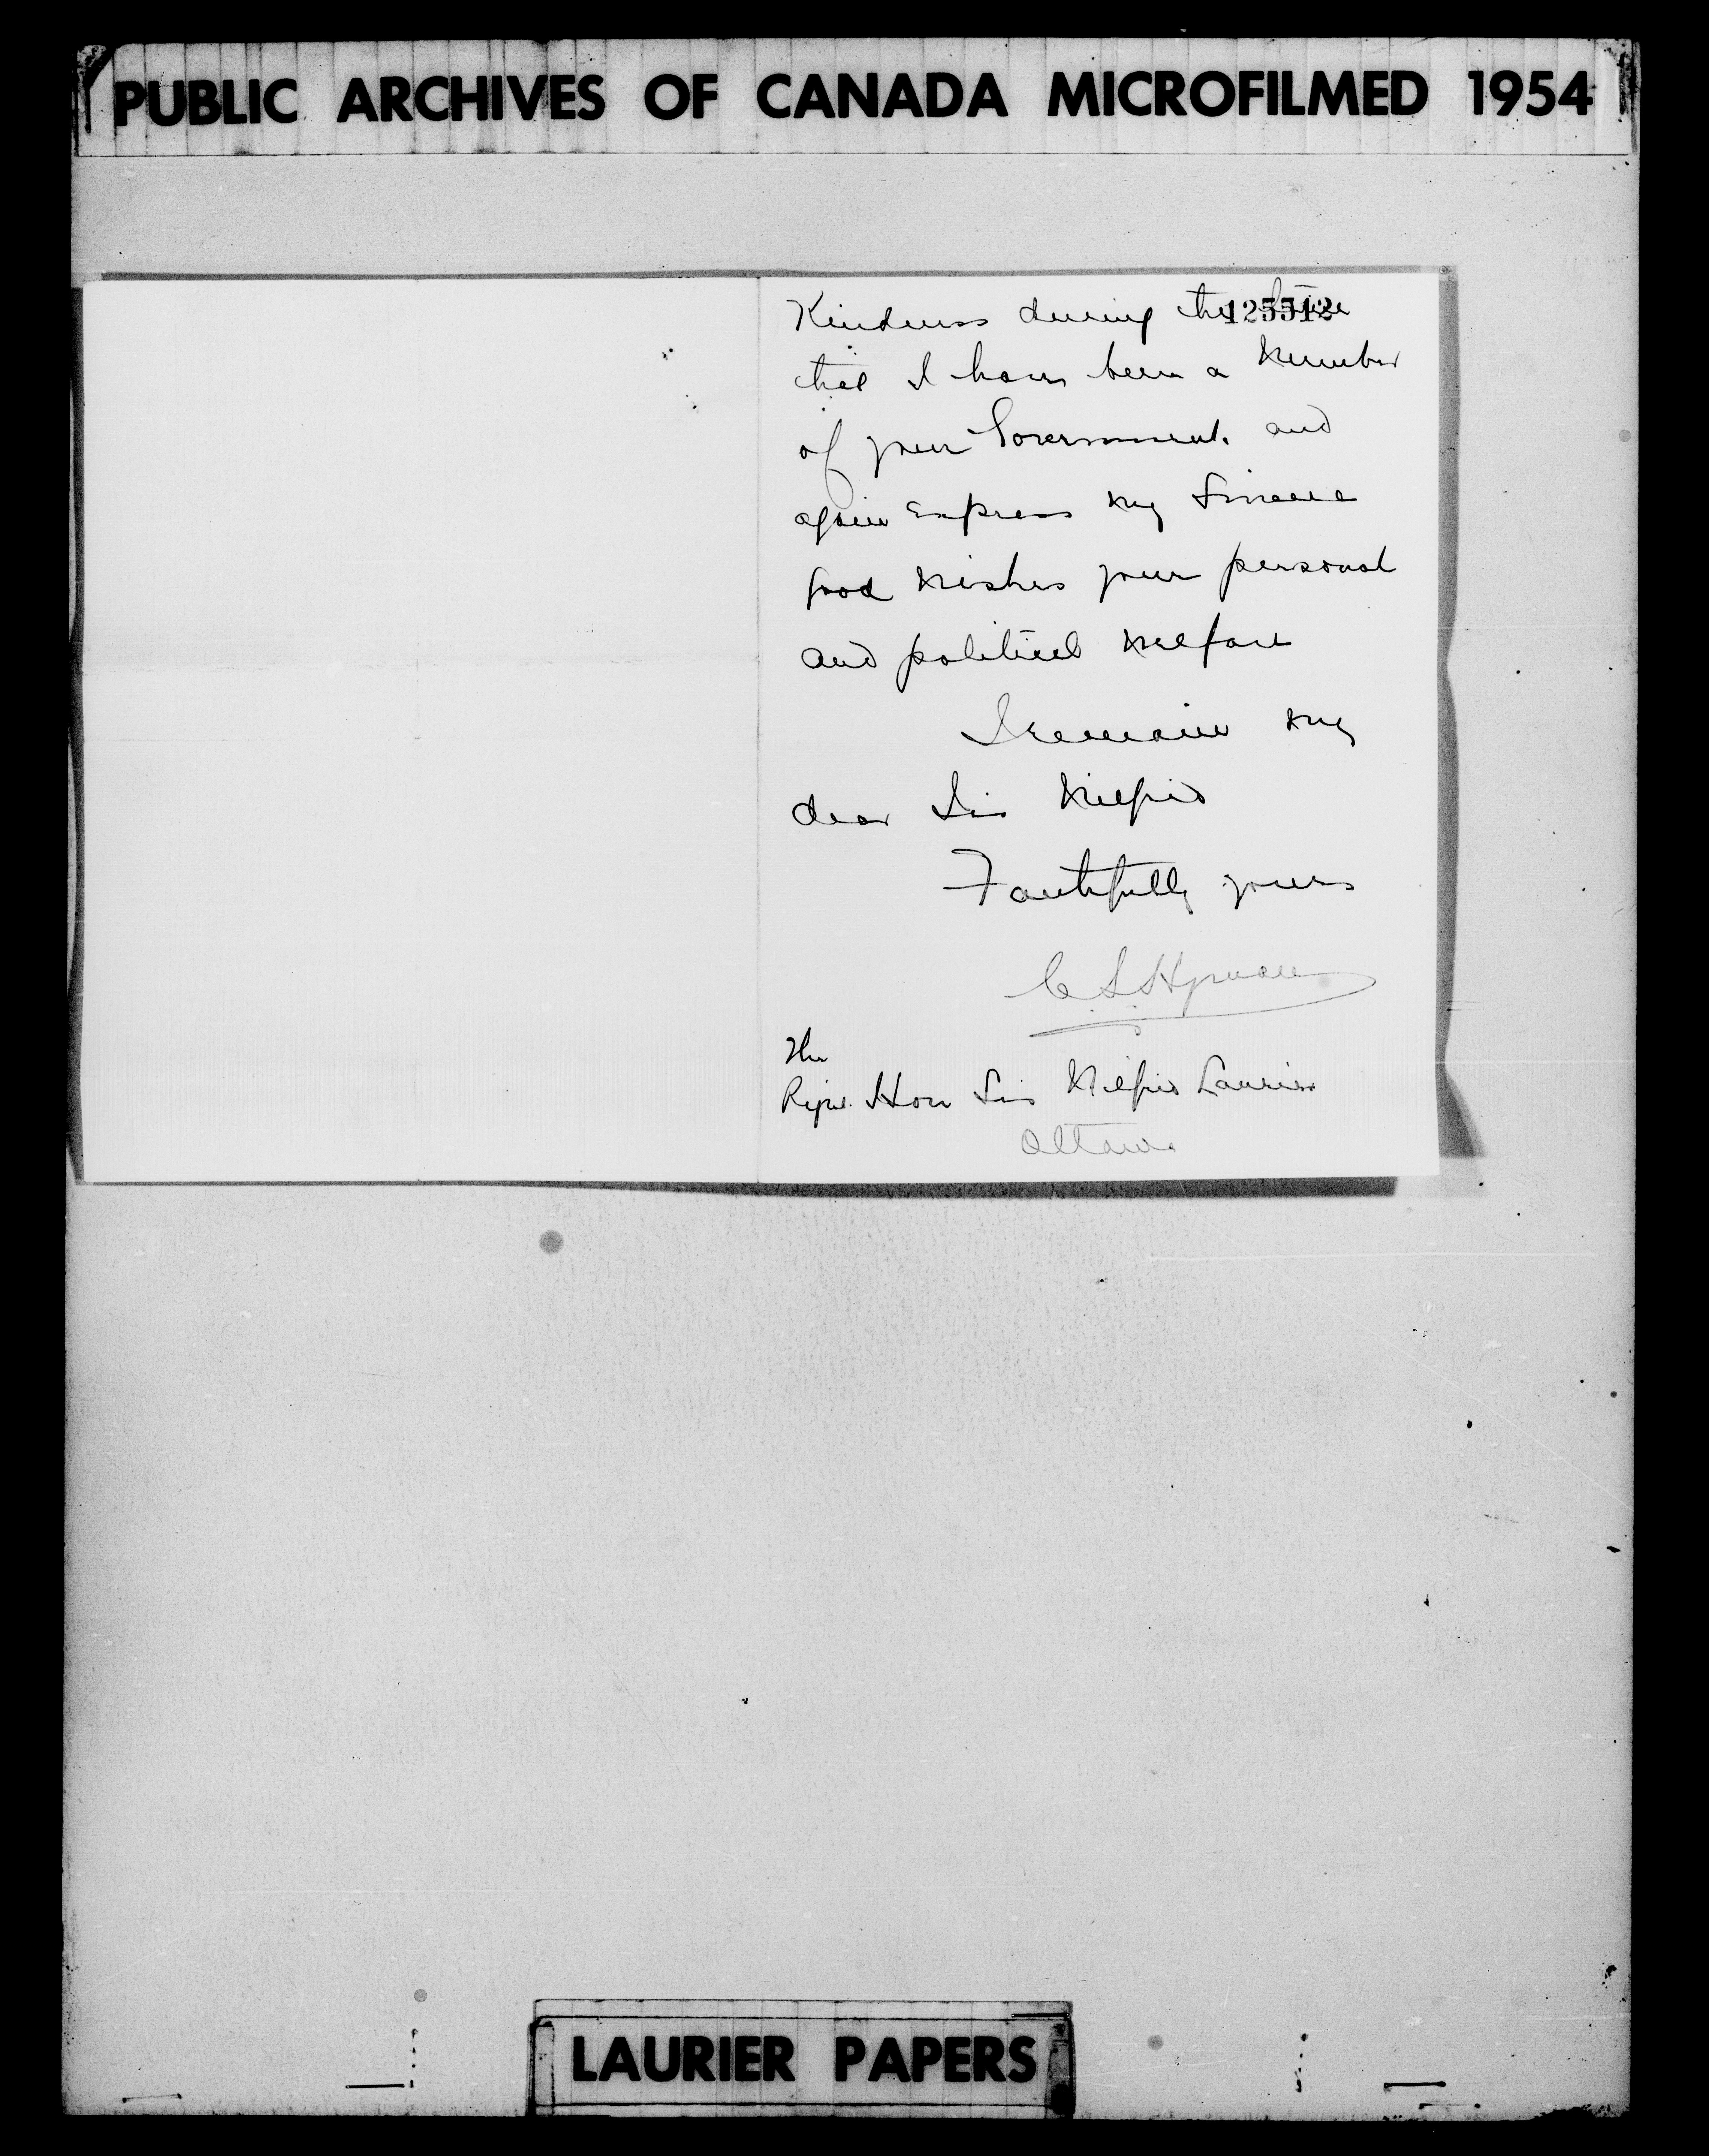 PUBLIC ARCHIVES OF CANADA MICROFILMED 1954
125512
Kindness during the time
that I have been a Member
of your Government and
again Express my Sincere
good wishes your personal
and political welfare
I remain my
dear Sir Wilfrid
Faithfully yours
C S Hyman
The
Right Hon Sir Wilfrid Laurier
Ottawa
LAURIER PAPERS